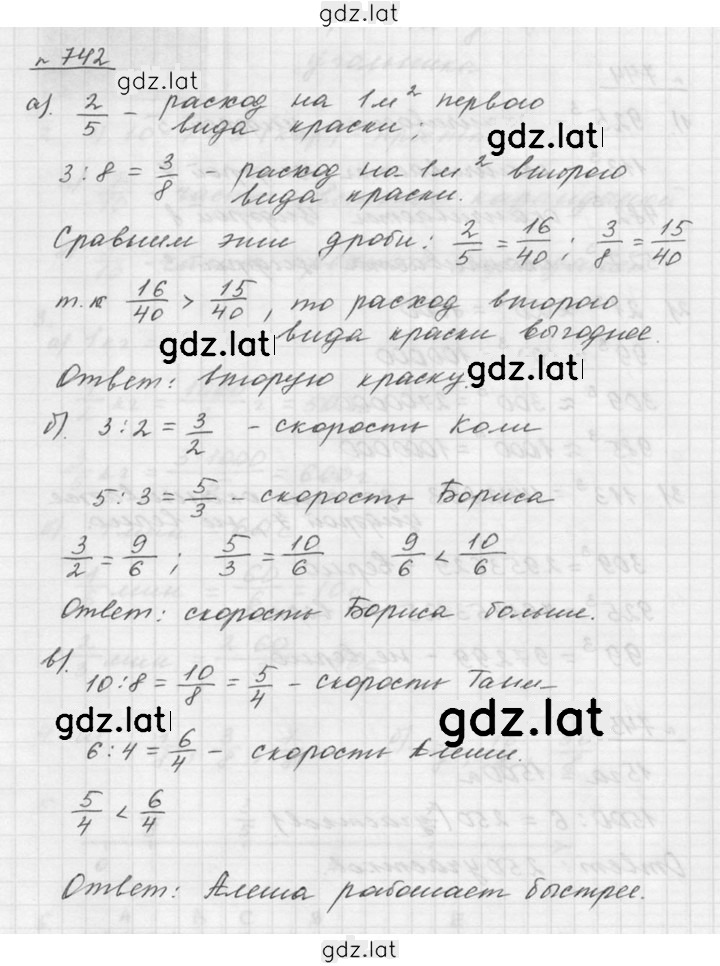 gdz.lat
№ 742
gdz.lat
а). 2/5 - расход на 1м² первого
вида краски;
gdz.lat
3 : 8 = 3/8 - расход на 1м² второго
вида краски.
Сравним эти дроби: 2/5 = 16/40; 3/8 = 15/40
т.к 16/40 > 15/40, то расход второго
вида краски выгоднее.
gdz.lat
gdz.lat
Ответ: вторую краску.
б). 3 : 2 = 3/2 - скорость Коли
5 : 3 = 5/3 - скорость Бориса
3/2 = 9/6; 5/3 = 10/6 9/6 < 10/6
Ответ: скорость Бориса больше.
в).
10 : 8 = 10/8 = 5/4 - скорость Тани
gdz.lat
gdz.lat
6 : 4 = 6/4 - скорость Алеши.
5/4 < 6/4
Ответ: Алеша работает быстрее.
gdz.lat